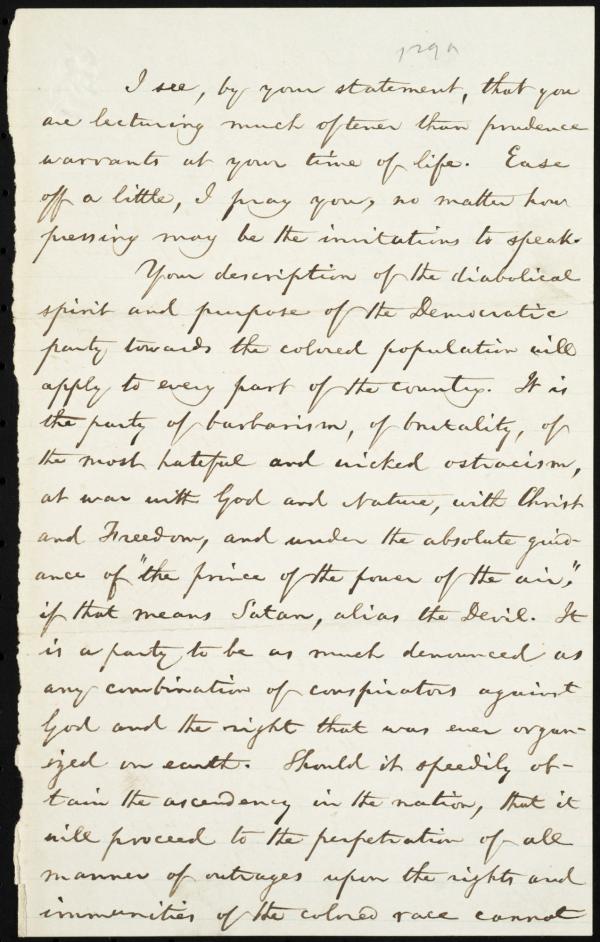 129A
I see, by your statement, that you
are lecturing much oftener than prudence
warrants at your time of life. Ease
off a little, I pray you, no matter how
pressing may be the invitations to speak.
Your description of the diabolical
spirit and purpose of the Democratic
party towards the colored population will
apply to every part of the country. It is
the party of barbarism, of brutality, of
the most hateful and wicked ostracism,
at war with God and Nature, with Christ
and Freedom, and under the absolute guid-
ance of "the prince of the power of the air,"
if that means Satan, alias the Devil. It
is a party to be as much denounced as
any combination of conspirators against
God and the right that was ever organ-
ized on earth. Should it speedily ob-
tain the ascendency in the nation, that it
will proceed to the perpetration of all
manner of outrages upon the rights and
immunities of the colored race cannot